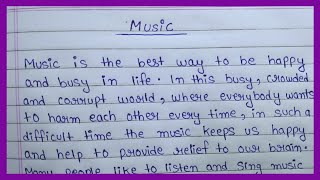 Music
Music is the best way to be happy
and busy in life. In this busy, crowded
and corrupt world, where everybody wants
to harm each other every time, in such a
difficult time the music keeps us happy
and help to provide relief to our brain.
Many people like to listen and sing music